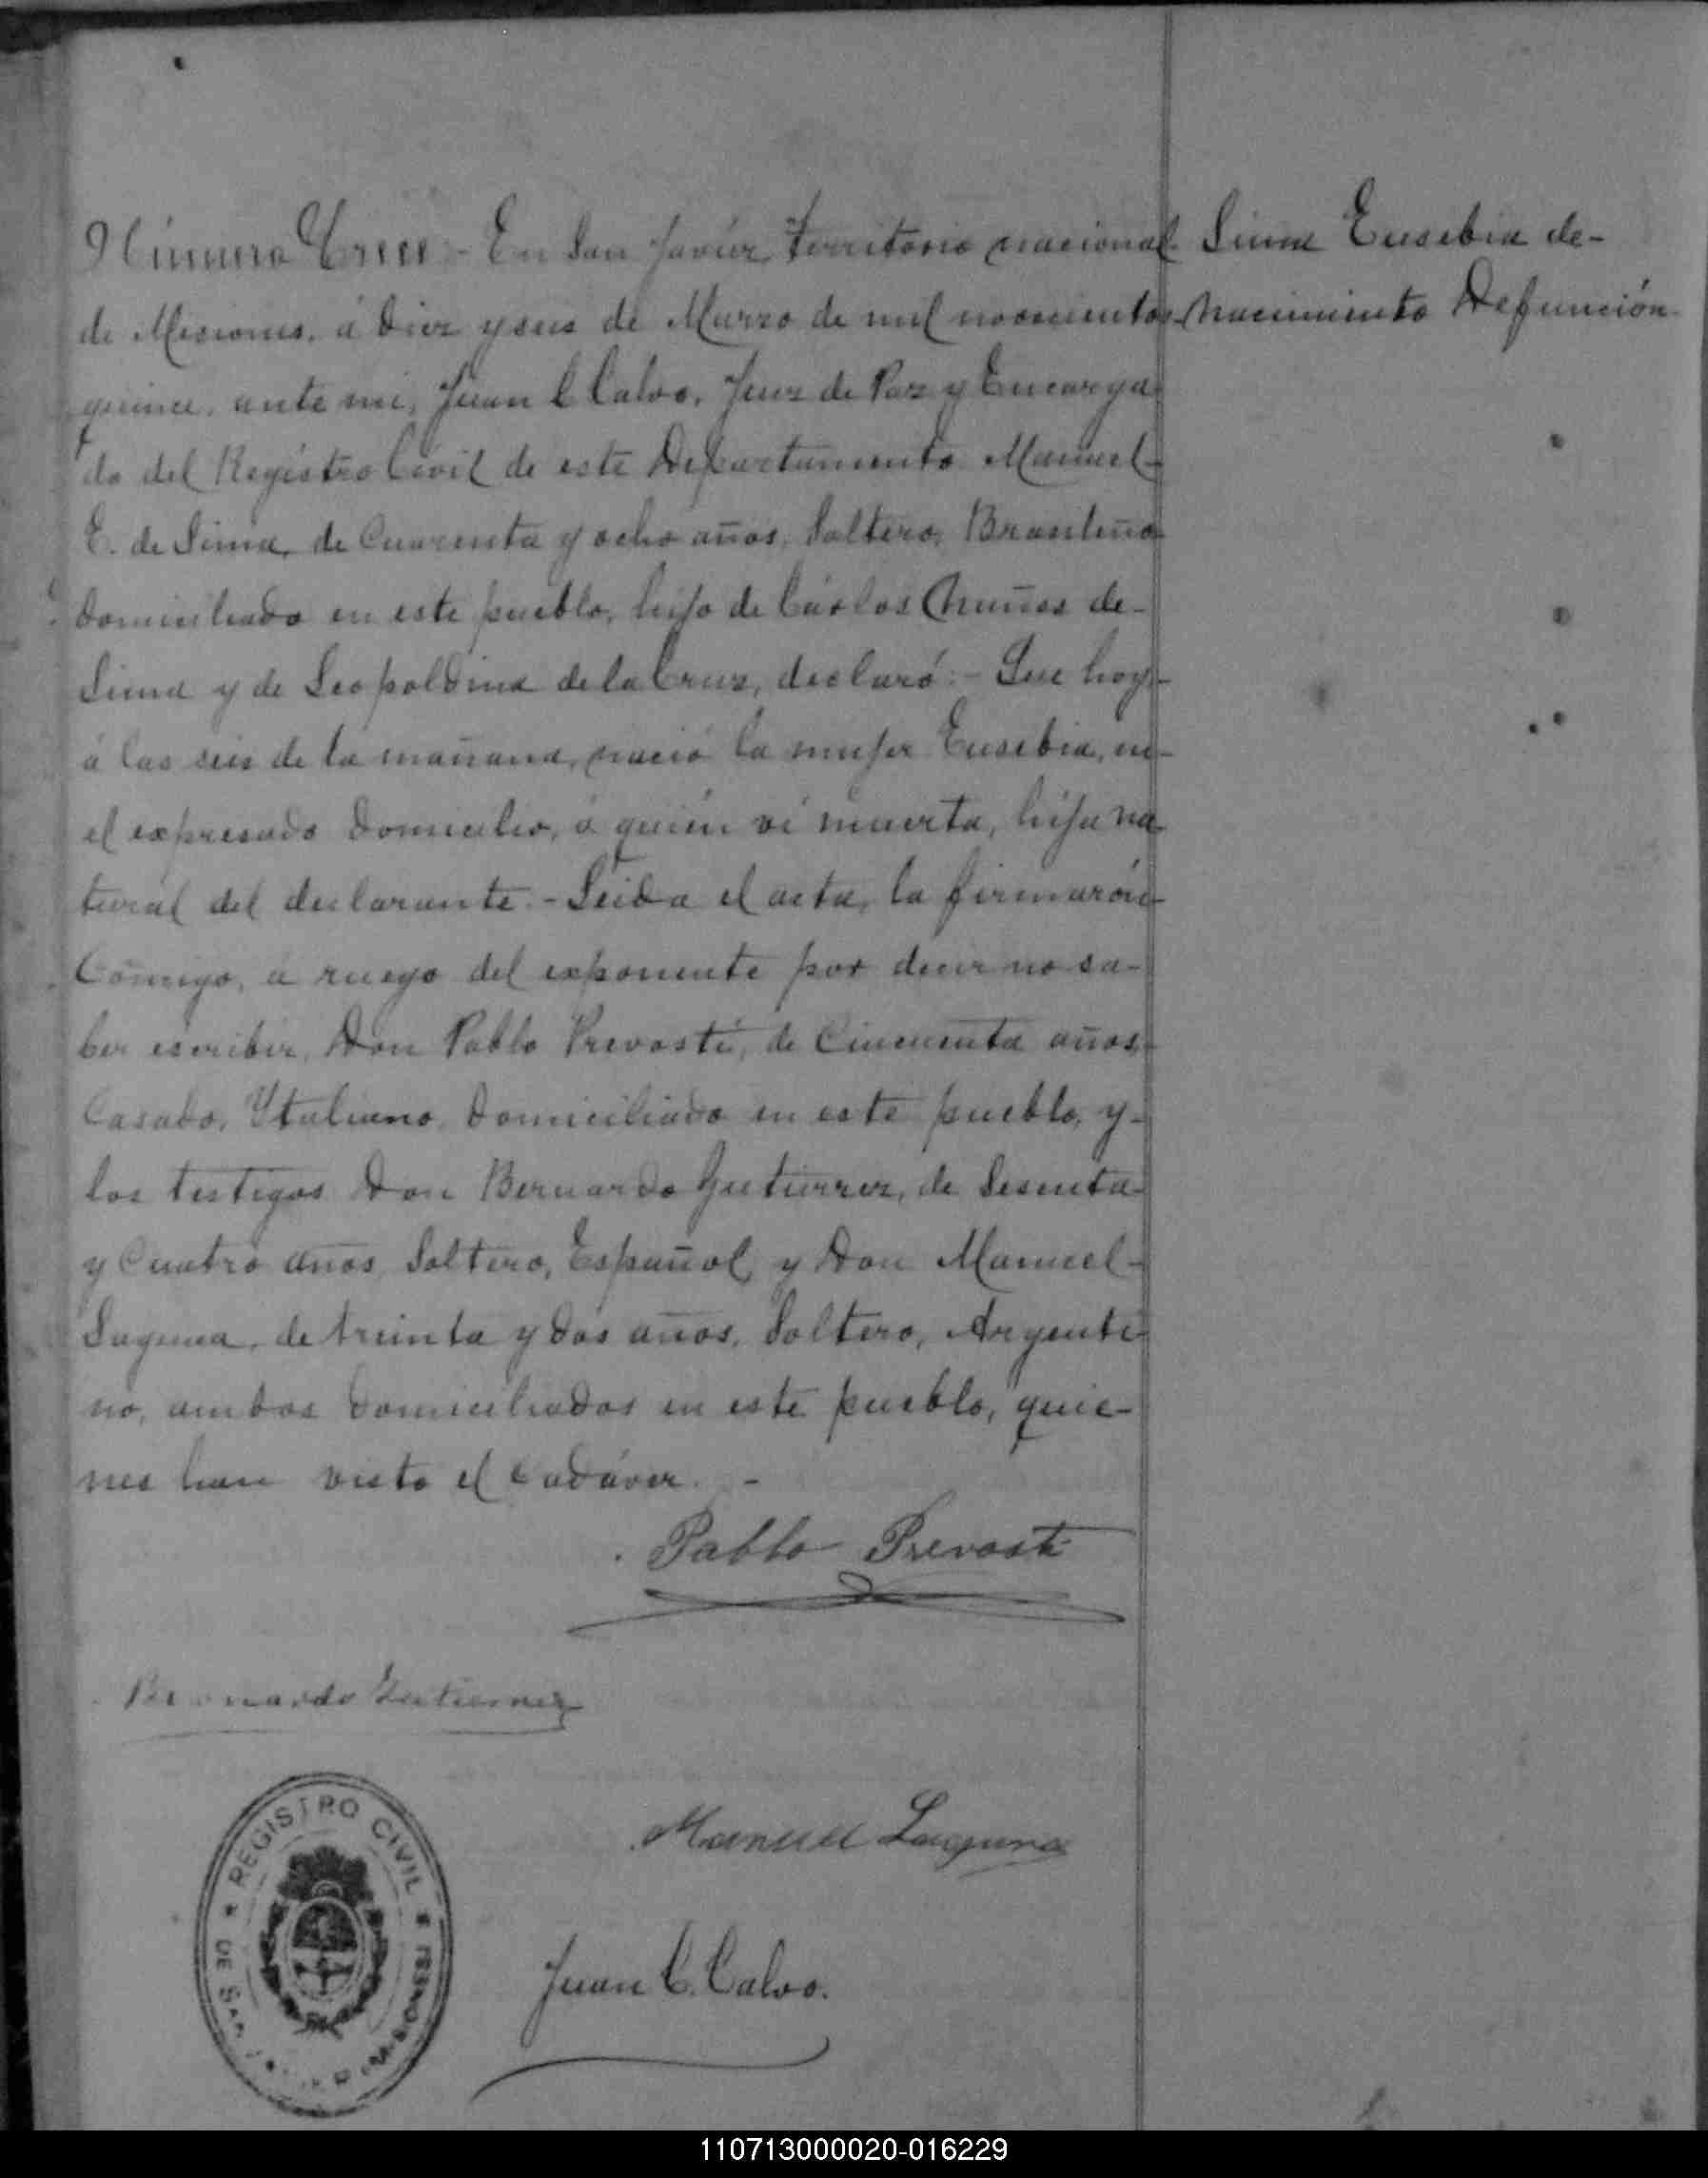 Número Trece - En San Javier, Territorio nacional
de Misiones, á diez y seis de Marzo de mil novecientos
quince, ante mi, Juan C Calvo, Juez de Paz y Encarga
do del Registro Civil de este Departamento Manuel-
E. de Lima, de Cuarenta y ocho años, Soltero, Brasileño
domiciliado en este pueblo, hijo de Cárlos Nuñes de-
Lima y de Leopoldina de la Cruz, declaró:- Que hoy-
á las seis de la mañana, nació la mujer Eusebia, en-
el expresado domicilio, á quién ví muerta, hija na
tural del declarante.- Leida el acta, la firmarón-
Cómigo, á ruego del exponente por decir no sa-
ber escribir, Don Pablo Prevosti, de Cincuenta años,
Casado, Ytaliano, domiciliado en este pueblo, y-
los testigos Don Bernardo Gutierrez, de Sesenta-
y Cuatro años, Soltero, Español, y Don Manuel-
Laguna, de treinta y dos años, Soltero, Argenti
no, ambos domiciliados en este pueblo, quie-
nes han visto el cadáver. -
Lima Eusebia de-
Nacimiento Defunción
Pablo Prevosti
Bernardo Gutierrez
Manuel Laguna
Juan C. Calvo.
REGISTRO CIVIL
DE SAN
110713000020-016229